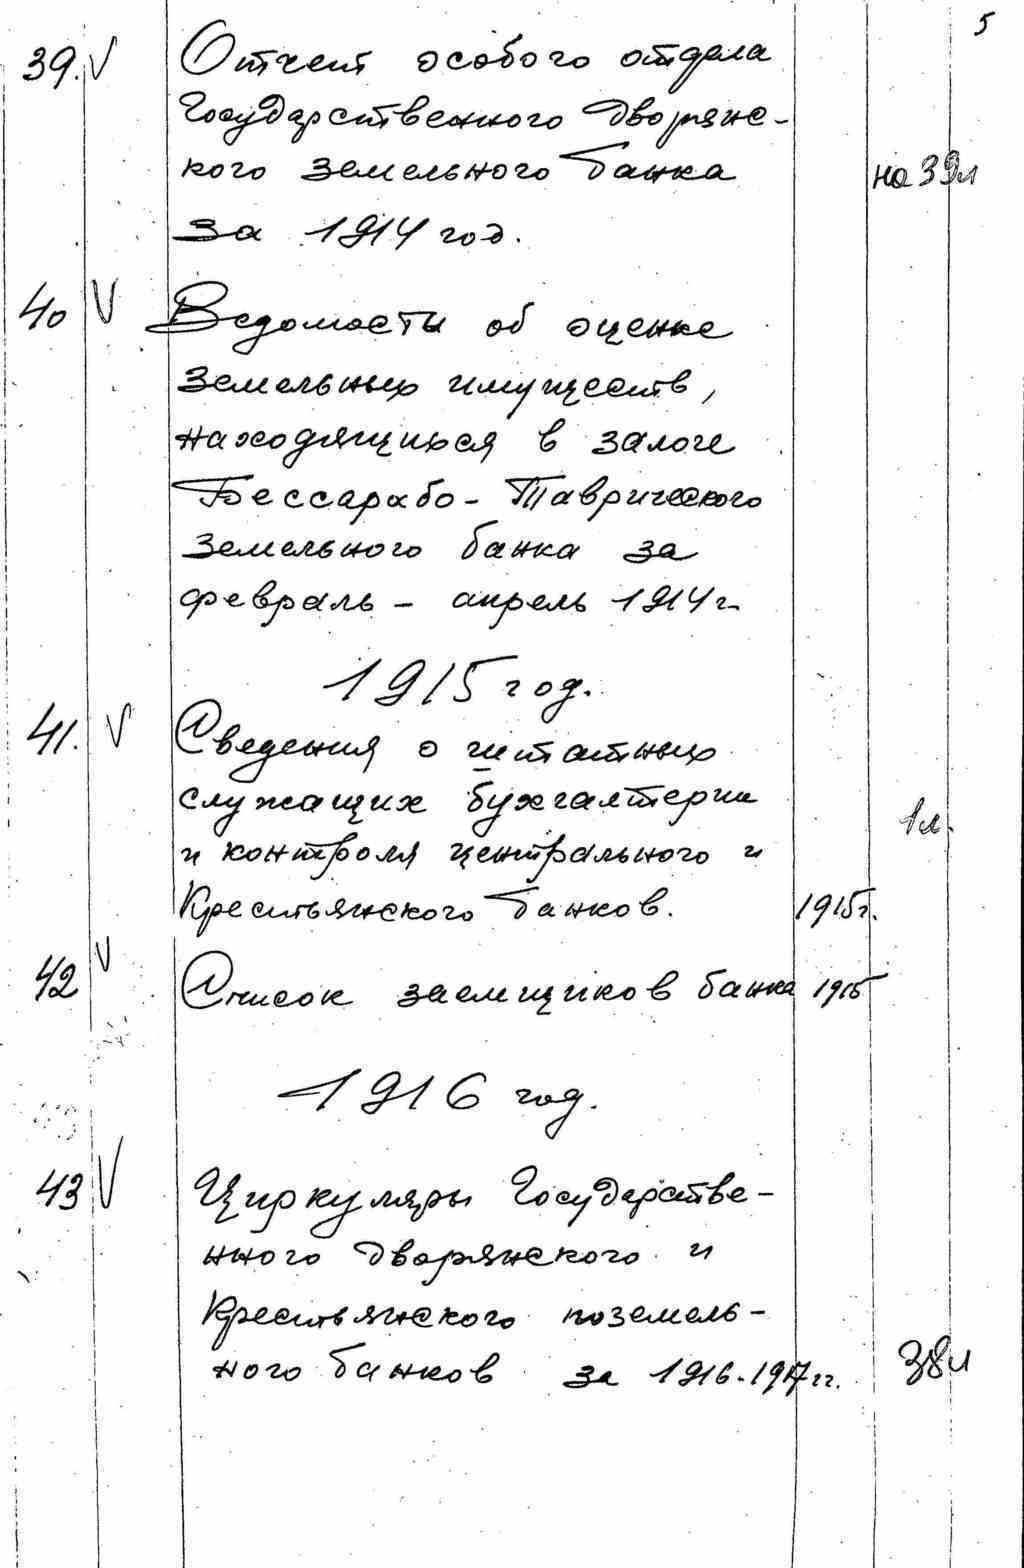 5
39. V Отчет особого отдела
Государственного Дворянс-
кого земельного банка
на 39л
за 1914 год.
40 V Ведомость об оценке
земельных имуществ,
находящихся в залоге
Бессарабо-Таврического
земельного банка за
февраль - апрель 1914г.
1915 год.
41. V Сведения о штатных
служащих бухгалтерии
1л.
и контроля центрального и
Крестьянского банков. 1915г.
42 V Список заемщиков банка 1915
1916 год.
43 V Циркуляры Государстве-
нного дворянского и
Крестьянского поземель-
ного банков за 1916-1917 гг. 38л